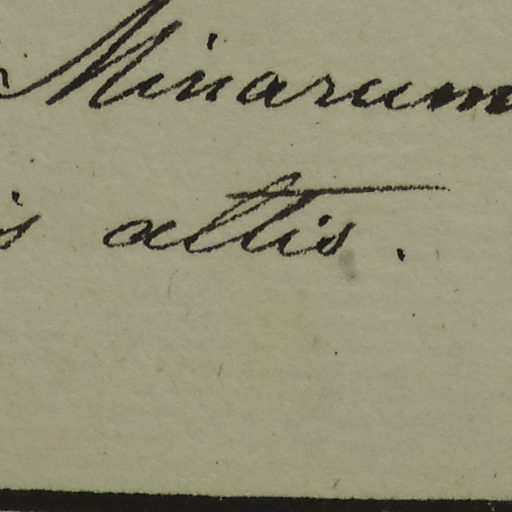 Minarum
altis.